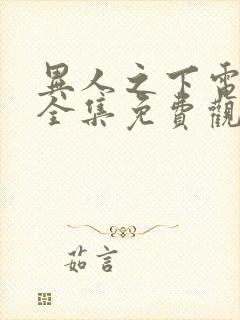 異人之下電
全集免費觀
茹言